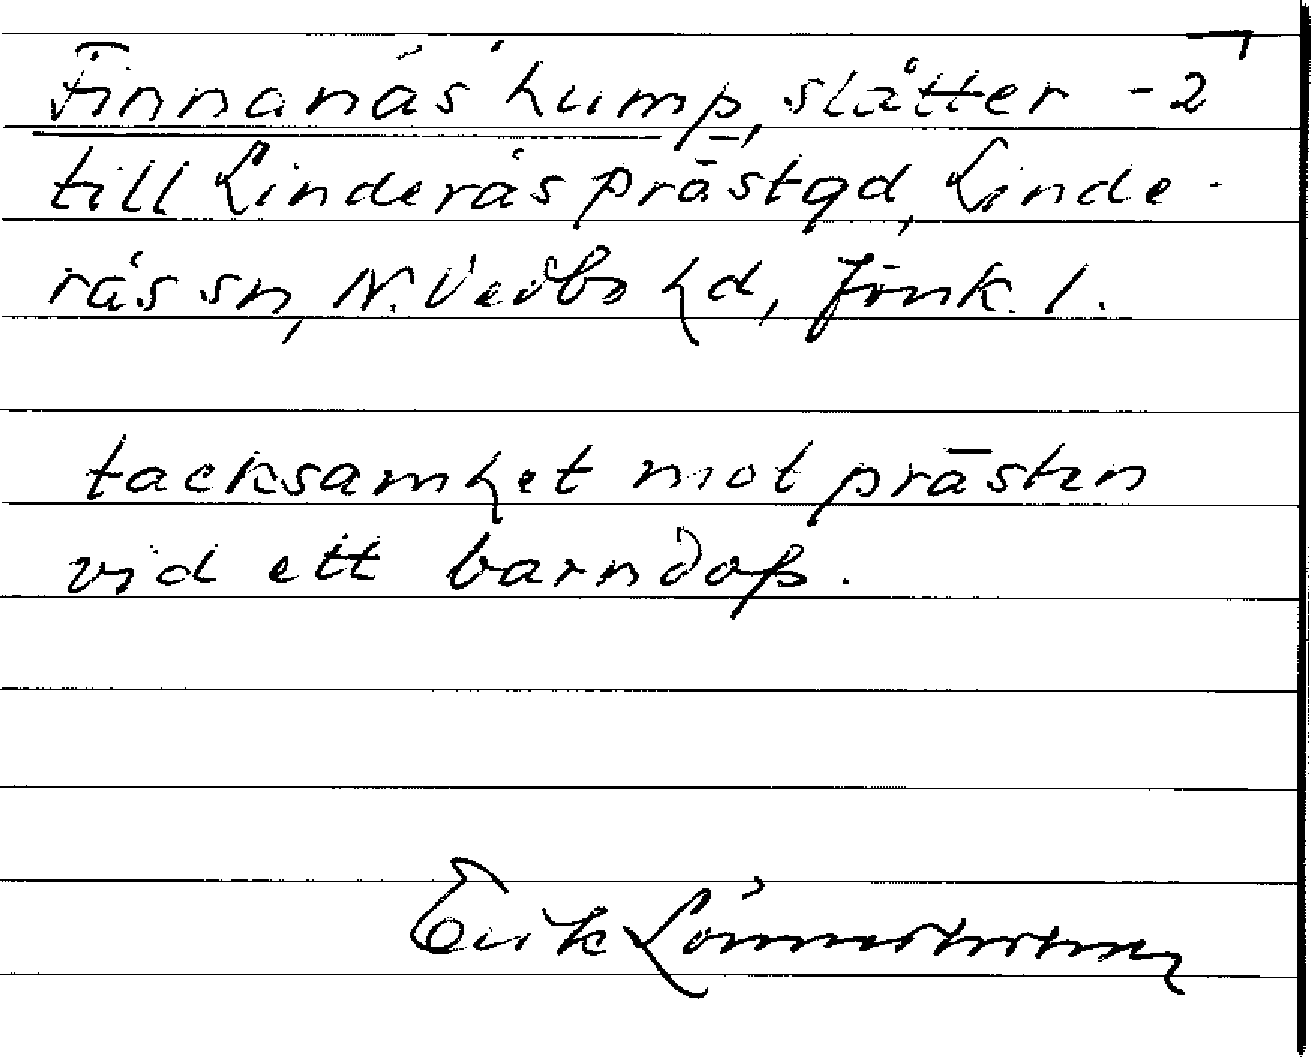 Finnanäs hump, slåtter -2
till Linderås prästgd, Linde-
rås sn, N. Vedbo hd, Jönk. l.
tacksamhet mot prästen
vid ett barndop.
Erik